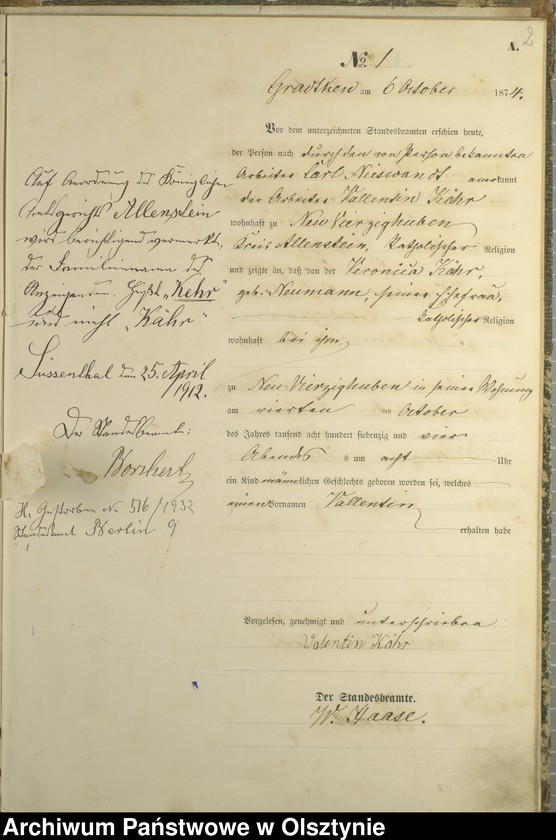 2
A.
No. 1
Gradtken am 6 October 1874.
Vor dem unterzeichneten Standesbeamten erschien heute,
der Person nach durch den von Person bekannten
Arbeiter Carl Nieswandt anerkannt
der Arbeiter Vallentin Köhr
wohnhaft zu Neu Vierzighuben
Kreis Allenstein, Katholischer Religion
und zeigte an, daß von der Veronica Köhr,
geb. Neumann, seiner Ehefrau,
Katholischer Religion
wohnhaft bei ihm
zu Neu Vierzighuben in seiner Wohnung
am vierten ten October
des Jahres tausend acht hundert siebenzig und vier
Abends um acht Uhr
ein Kind männlichen Geschlechts geboren worden sei, welches
einen Vornamen Vallentin
erhalten habe
Vorgelesen, genehmigt und unterschrieben
Valentin Köhr
Der Standesbeamte.
W. Haase.
Auf Anordnung des Königlichen
Amtsgerichts Allenstein
wird berichtigend vermerkt,
daß der Familienname des
Anzeigenden "Kehr"
und nicht "Köhr"
Süssenthal den 25. April
1912.
Der Standesbeamte:
Borchert
H. Gestorben Nr. 516/1932
Standesamt Berlin 9
Archiwum Państwowe w Olsztynie